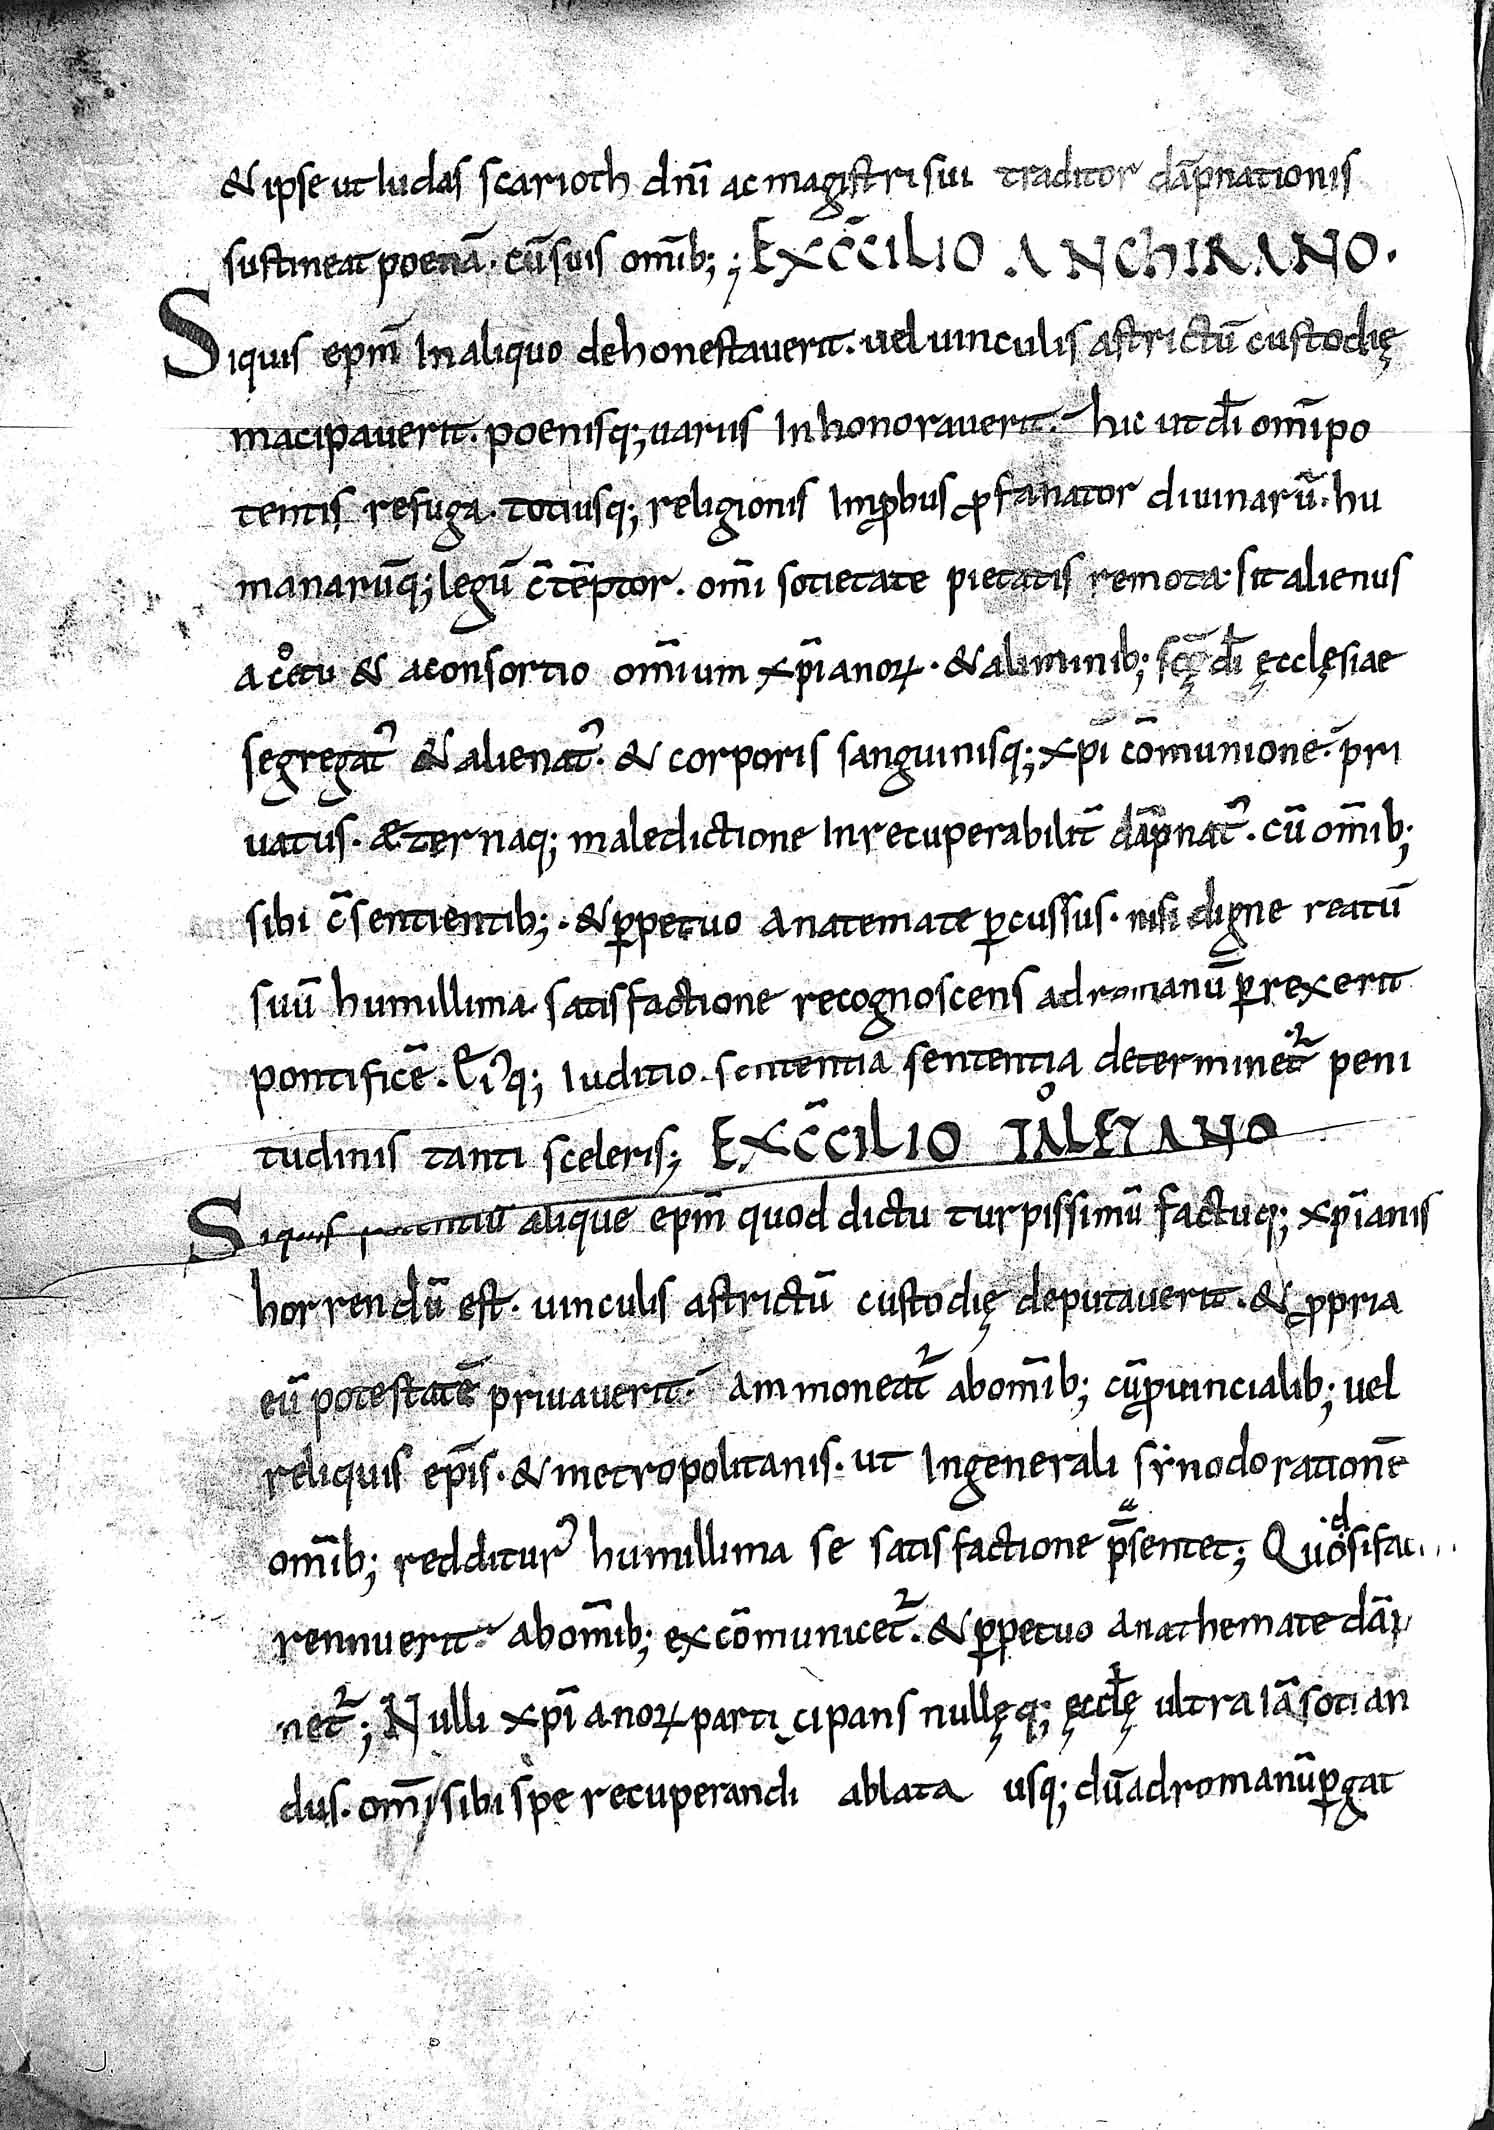 & ipse ut Iudas scarioth dn̄i ac magistri sui traditor dāpnationis
sustineat poenā. cū suis om̄ib; ; EX C̄CILIO ANCHIRANO.
Siquis ep̄m In aliquo dehonestaverit. vel vinculis astrictū custodię
macipaverit. poenisq; variis Inhonoraverit. hic ut dī om̄ipo
tentis refuga. totiusq; religionis Imꝓbus ꝓfanator divinarū. hu
manarūq; legū c̄tēptor. om̄i sotietate pietatis remota. sit alienus
a coetu & a consortio om̄ium xp̄ianoꝝ. & a liminib; scę̄ dī ęcclęsiae
segregat᾽ & alienat᾽. & corporis sanguinisq; xp̄i cōmunione. pri
vatus. æternaq; maledictione Inrecuperabilit̄ dāpnat᾽. cū om̄ib;
sibi c̄sentientib;. & ꝑpetuo anatemate ꝑcussus. nisi digne reatū
suū humillima satisfactione recognoscens ad romanū ꝑrexerit
pontificē. Ei᾽q; Iuditio sententia sententia determinet᾽ peni
tudinis tanti sceleris; EX C̄CILIO TOLETANO
Siquis potentiū alique ep̄m quod dictu turpissimū factuq; xp̄ianis
horrendū est. vinculis astrictū custodię deputaverit. & ꝓpria
eū potestatē privaverit. Ammoneat᾽ ab om̄ib; cū ꝓvincialib; vel
reliquis ep̄is. & metropolitanis. ut In generali sẏnodo rationē
om̄ib; redditur᾽ humillima se satisfactione p̄sentet; Quodsi
rennuerit. ab om̄ib; excōmunicet᾽. & ꝑpetuo anathemate dāp
net᾽; Nulli xp̄ianoꝝ participans nullęq; ęcclę̄ ultra Iā sotian
dus. om̄i sibi spe recuperandi ablata usq; dū ad romanū ꝑgat